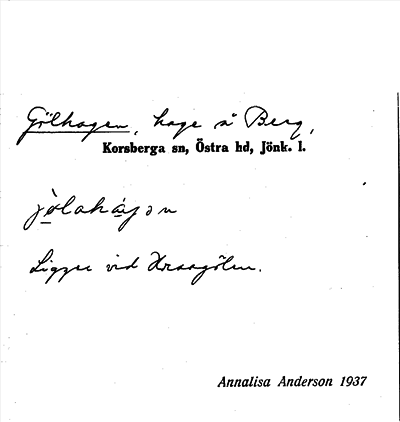 Gölhagen, hage å Berg,
Korsberga sn, Östra hd, Jönk. l.
jølahájən
Ligger vid Kroagölen.
Annalisa Anderson 1937